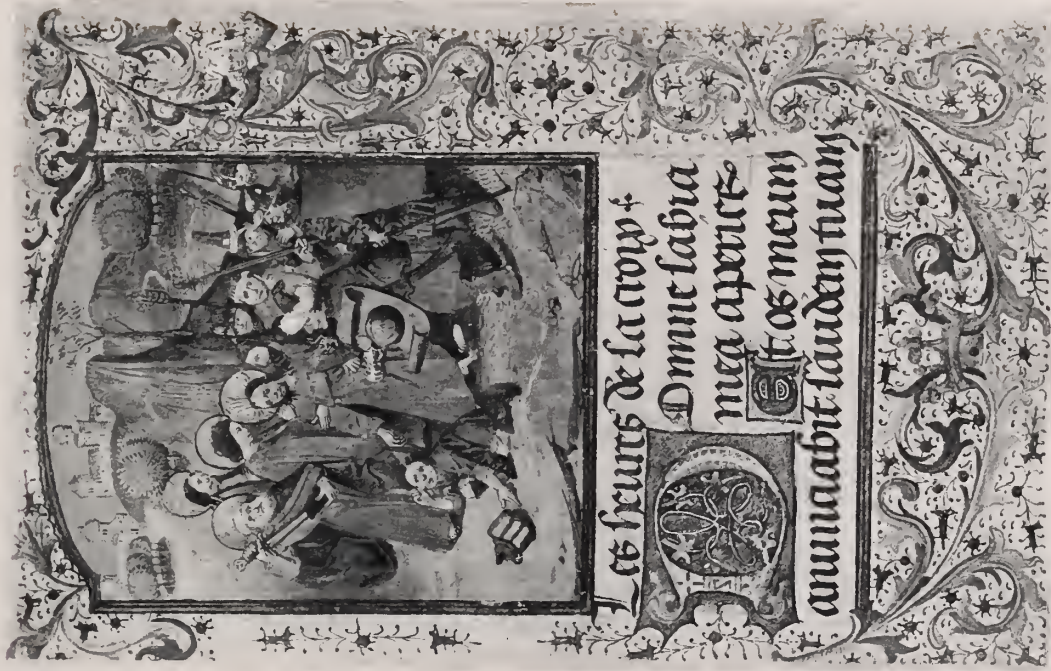 Les heures de la croix
DOmine labia
mea aperies
Et os meum
anunciabit laudem tuam